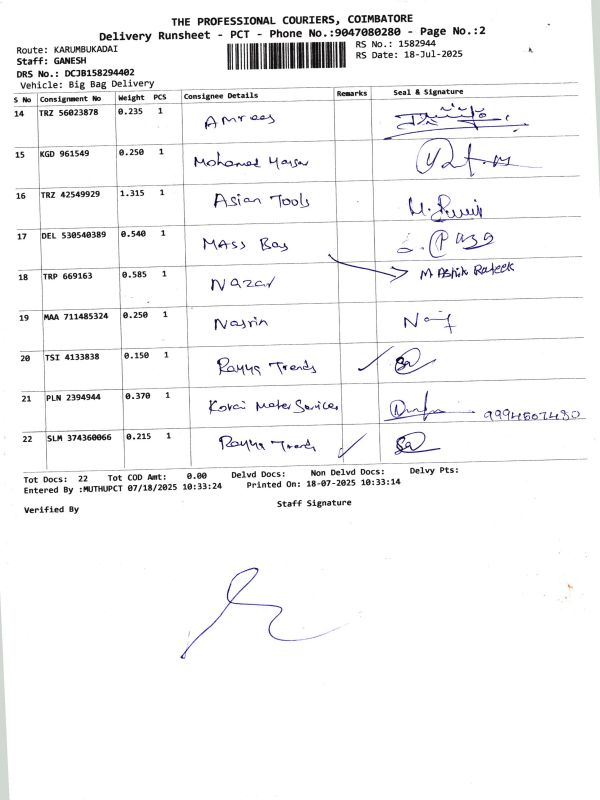 THE PROFESSIONAL COURIERS, COIMBATORE
Delivery Runsheet - PCT - Phone No.:9047080280 - Page No.:2
Route: KARUMBUKADAI
RS No.: 1582944
Staff: GANESH
RS Date: 18-Jul-2025
DRS No.: DCJB158294402
Vehicle: Big Bag Delivery
S No Consignment No Weight PCS Consignee Details Remarks Seal & Signature
14 TRZ 56023878 0.235 1 Amrees
15 KGD 961549 0.250 1 Mohamed
16 TRZ 42549929 1.315 1 Asian Tools
17 DEL 530540389 0.540 1 MASS Bag
18 TRP 669163 0.585 1 Nazar M Ashik Rafeek
19 MAA 711485324 0.250 1 Nasrin
20 TSI 4133838 0.150 1 Rayya Trends
21 PLN 2394944 0.370 1 Kovai Meter Services 9994507480
22 SLM 374360066 0.215 1 Rayya Trends
Tot Docs: 22 Tot COD Amt: 0.00 Delvd Docs: Non Delvd Docs: Delvy Pts:
Entered By :MUTHUPCT 07/18/2025 10:33:24 Printed On: 18-07-2025 10:33:14
Verified By Staff Signature